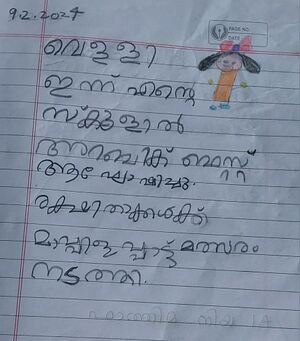 PAGE NO.
DATE
9.2.2024
വെള്ളി
ഇന്ന് എന്റെ
സ്കൂളിൽ
അറബിക് ഫെസ്റ്റ്
ആഘോഷിച്ചു.
രക്ഷിതാക്കൾക്ക്
മാപ്പിളപ്പാട്ട് മത്സരം
നടത്തി.